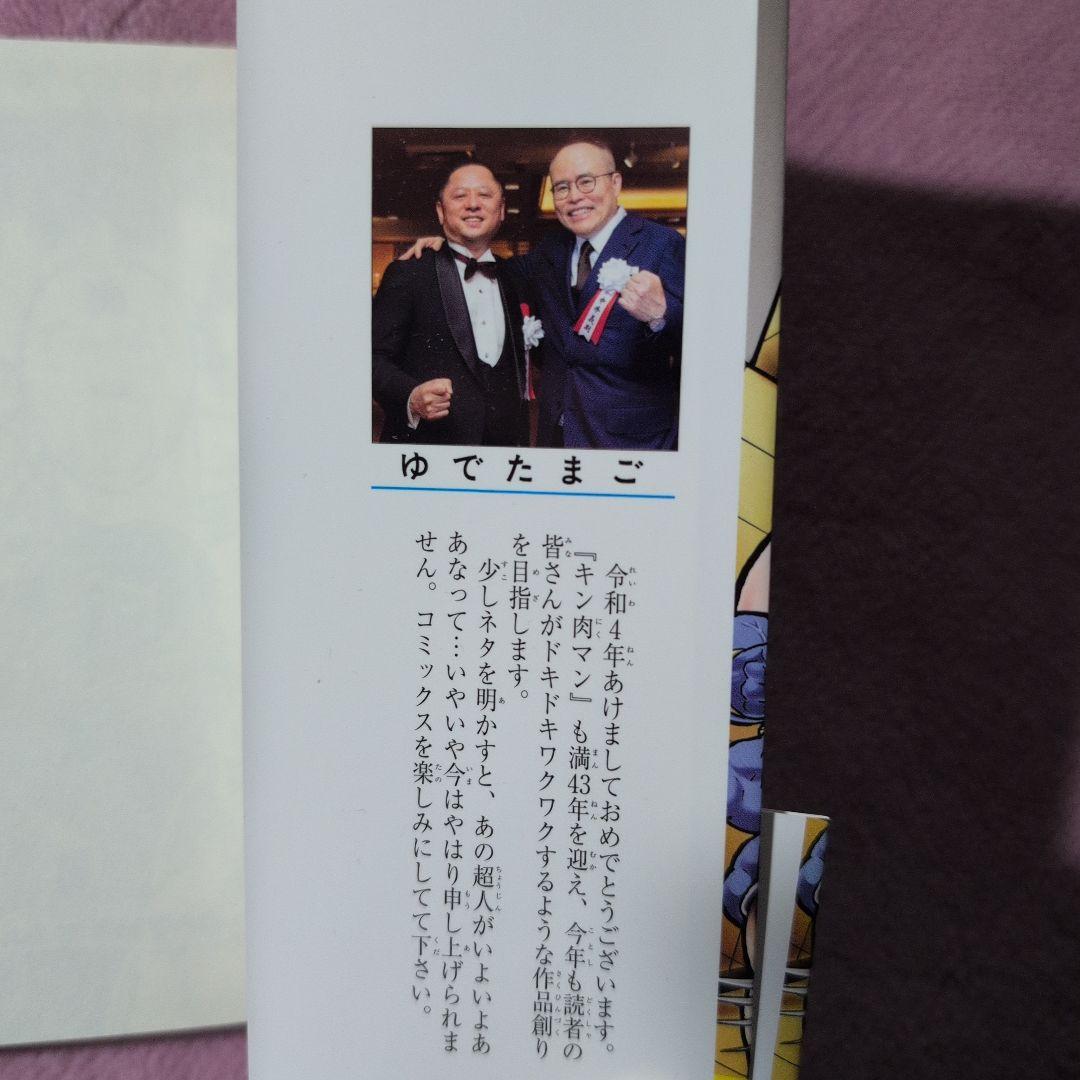 ゆでたまご
令和4年あけましておめでとうございます。
『キン肉マン』も満43年を迎え、今年も読者の
皆さんがドキドキワクワクするような作品創り
を目指します。
少しネタを明かすと、あの超人がいよいよあ
あなって…いやいや今はやはり申し上げられま
せん。コミックスを楽しみにしてて下さい。